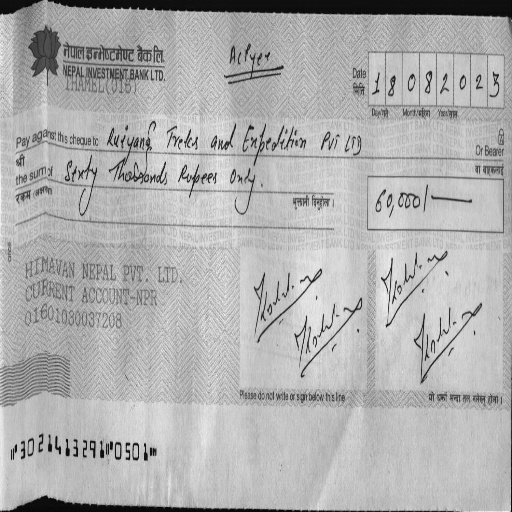 नेपाल इन्भेष्टमेण्ट बैंक लि.
NEPAL INVESTMENT BANK LTD.
THAMEL(016)
A/c Payee
Date
मिति
1 8 0 8 2 0 2 3
Day/गते Month/महिना Year/साल
Pay against this cheque to Ruiyang Treks and Expedition PVT LTD
Or Bearer
श्री
वा वाहकलाई
the sum of Sixty Thousands Rupees Only.
रकम (अक्षरेपी)
भुक्तानी दिनुहोला।
60,000/-
HIMAVAN NEPAL PVT. LTD.
CURRENT ACCOUNT-NPR
01601030037208
Please do not write or sign below this line
यो धर्का भन्दा तल नलेख्नु होला।
⑈302141329⑈0501⑈